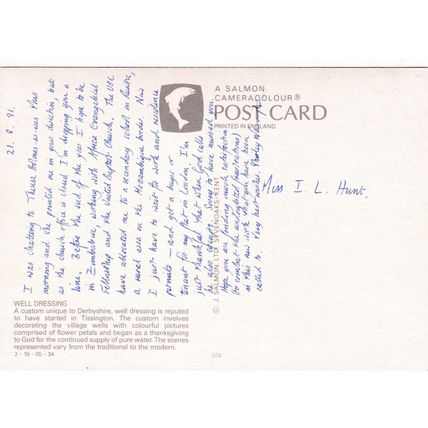 21. 8. 91.
I was chatting to Thérèse Holmes-as-was this
morning and she pointed me in your direction but
as the church office is closed I'm dropping you a
line. Before the end of the year I hope to be
in Zimbabwe, working with Africa Evangelical
Fellowship and the United Baptist Church. The UBC
have allocated me to a secondary school in Rusitu,
a rural area on the Mozambique border. Now
I just have to wait for work and residence
permits — and get a buyer or
tenant for my flat in London. I'm
just thankful that when God calls
he also equips. Seems to have missed you
you are finding much
to combat the
in this new work that you have been
called to. Very best wishes.
Miss I. L. Hunt.
A SALMON
CAMERACOLOUR®
POST CARD
PRINTED IN ENGLAND
© J SALMON LTD. SEVENOAKS KENT
WELL DRESSING
A custom unique to Derbyshire, well dressing is reputed
to have started in Tissington. The custom involves
decorating the village wells with colourful pictures
comprised of flower petals and began as a thanksgiving
to God for the continued supply of pure water. The scenes
represented vary from the traditional to the modern.
2 - 19 - 00 - 24
074